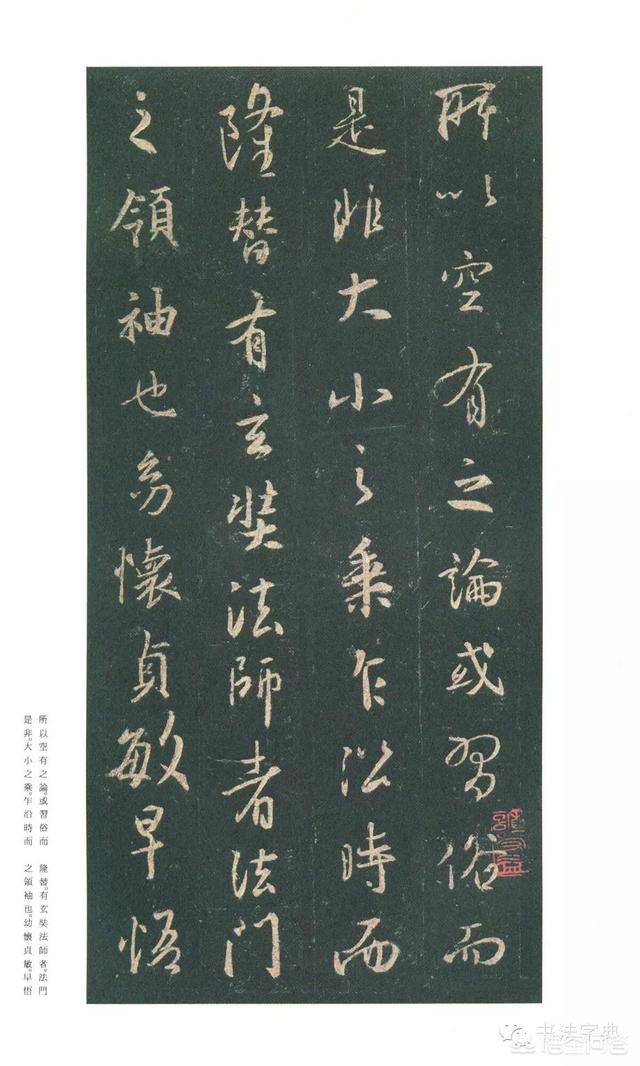 所以空有之論或習俗而
是非大小之乘乍沿時而
隆替有玄奘法師者法門
之領袖也幼懷貞敏早悟
所以空有之論。或習俗而
是非。大小之乘。乍沿時而
隆替。有玄奘法師者。法門
之領袖也。幼懷貞敏。早悟
书法字典
悟空问答